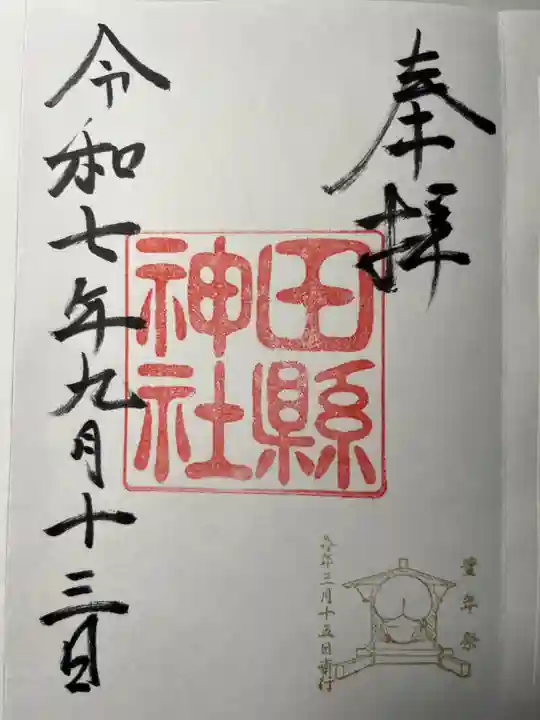 奉拝
田縣
神社
令和七年九月十三日
豊年祭
毎年三月十五日斎行